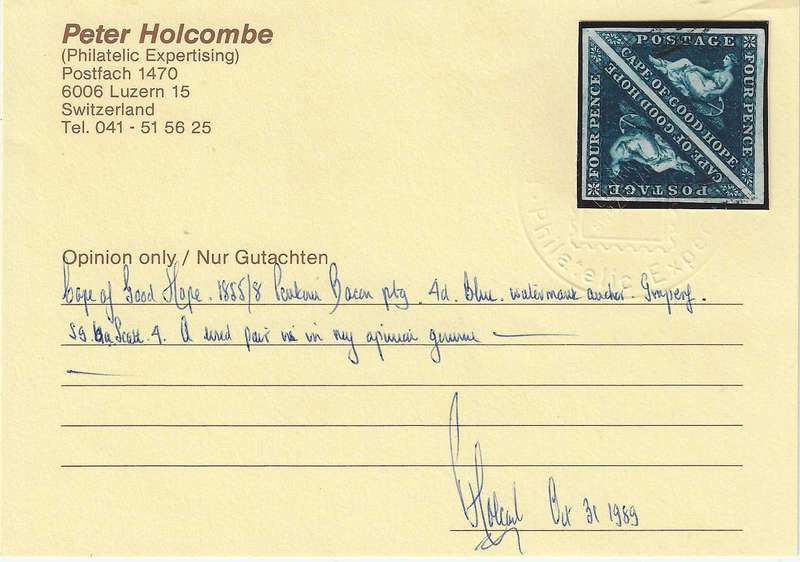 Peter Holcombe
(Philatelic Expertising)
Postfach 1470
6006 Luzern 15
Switzerland
Tel. 041 - 51 56 25
POSTAGE
FOUR PENCE
CAPE OF GOOD HOPE
CAPE OF GOOD HOPE
FOUR PENCE
POSTAGE
Philatelic
Opinion only / Nur Gutachten
Cape of Good Hope. 1855/8 Perkins Bacon ptg. 4d. Blue. watermark anchor. Imperf.
SG Scott. 4. A used pair is in my opinion genuine
Holcombe Oct 31 1989